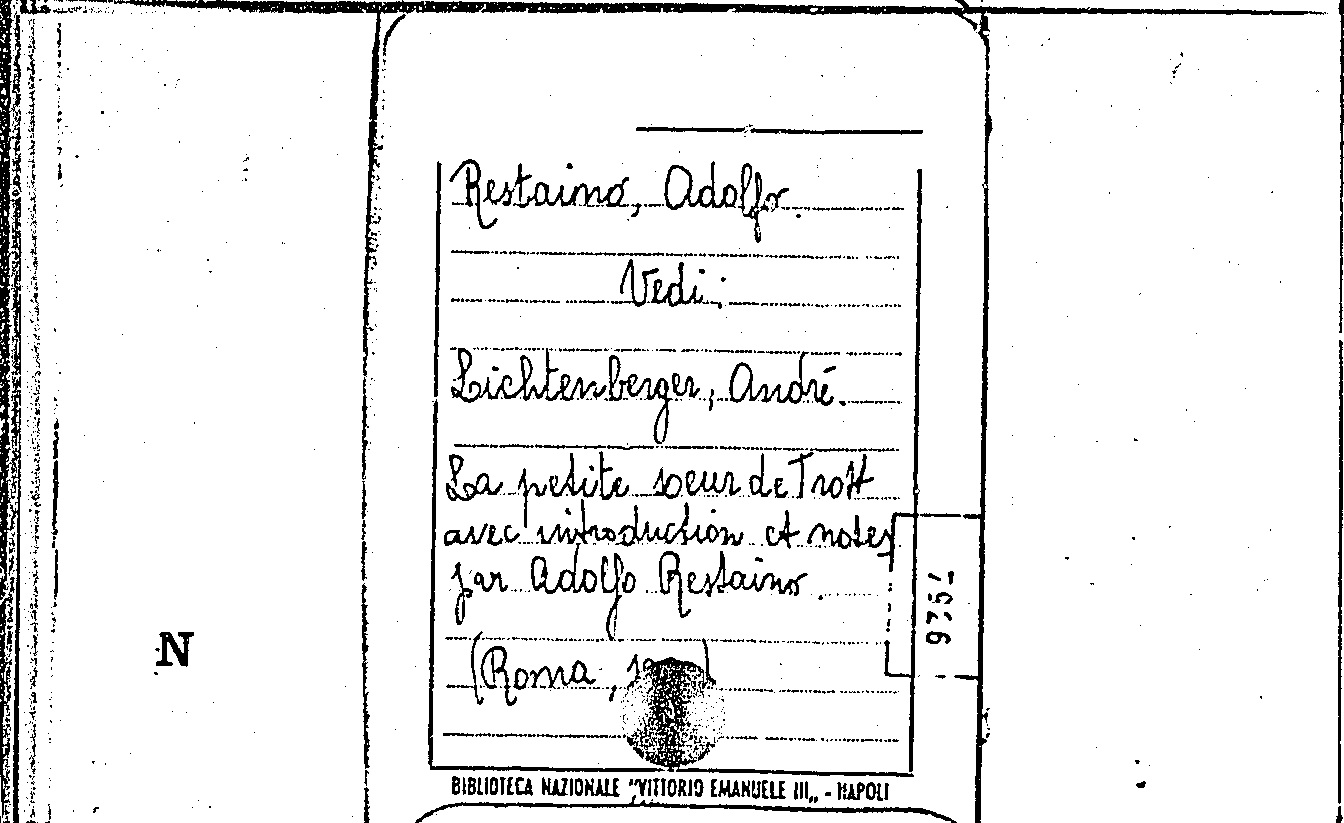 Restaino, Adolfo.
Vedi:
Lichtenberger, André.
La petite soeur de Trott
avec introduction et notes
par Adolfo Restaino.
(Roma,
N
BIBLIOTECA NAZIONALE "VITTORIO EMANUELE III„ - NAPOLI